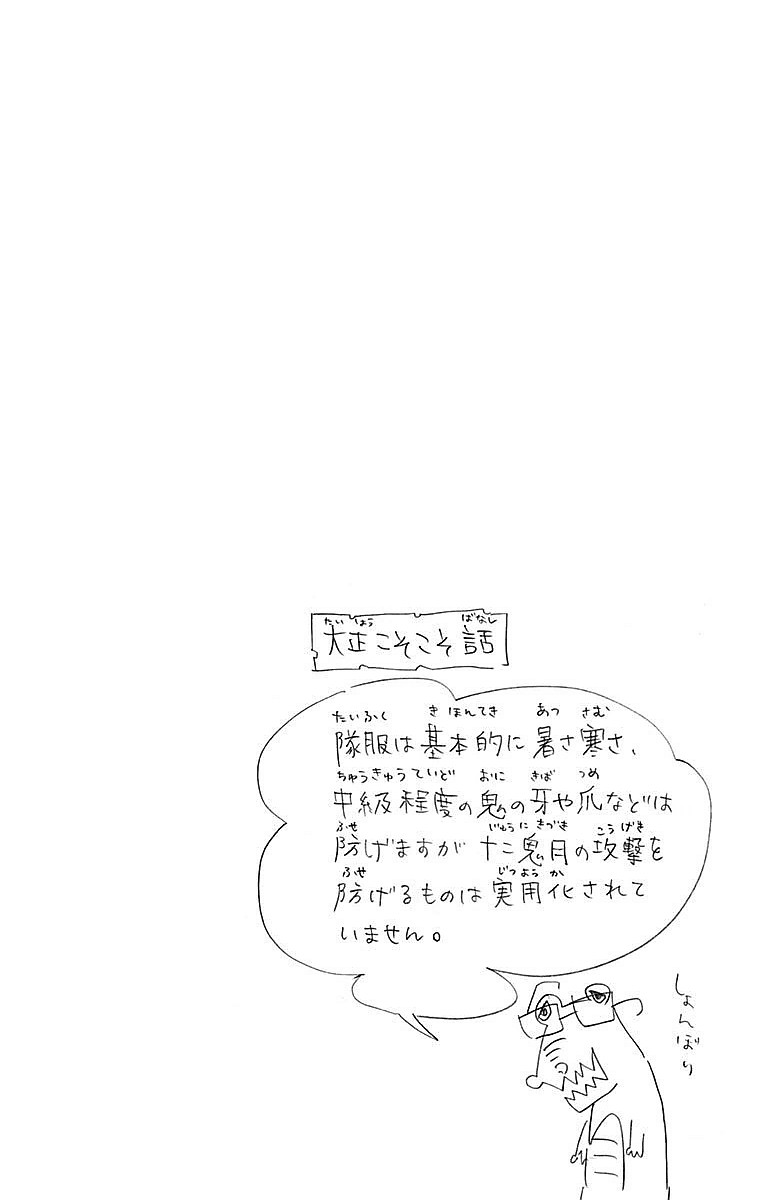 大正こそこそ話
隊服は基本的に暑さ寒さ、
中級程度の鬼の牙や爪などは
防げますが十二鬼月の攻撃を
防げるものは実用化されて
いません。
しょんぼり